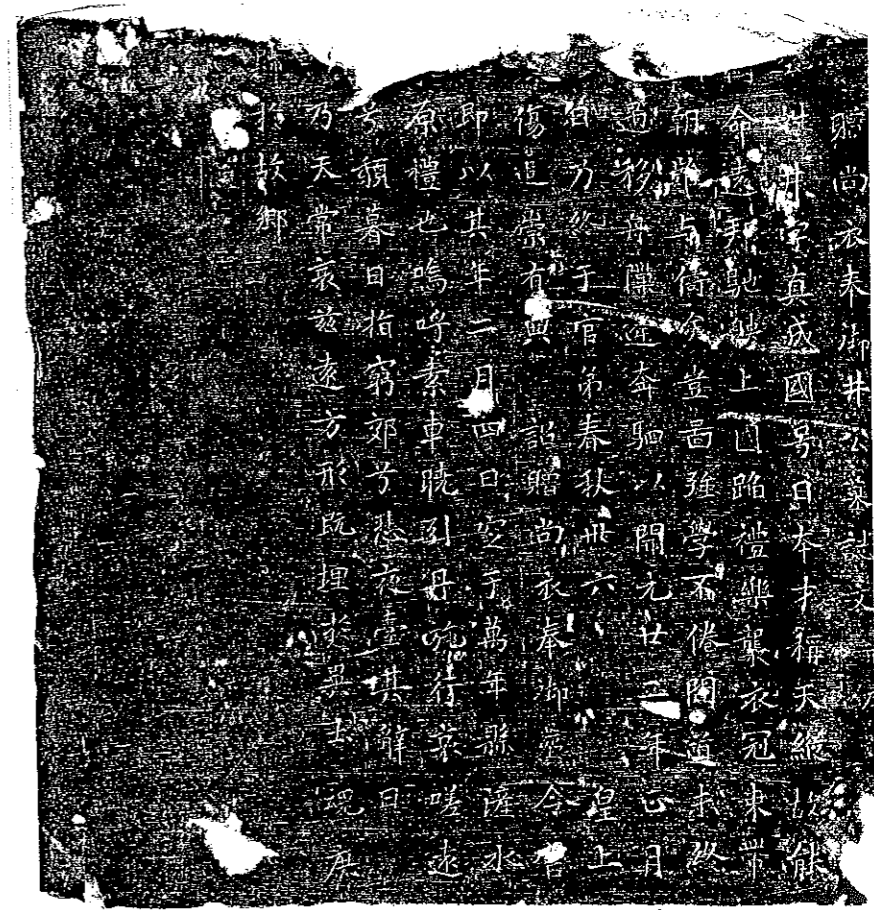 贈尚衣奉御井公墓誌文并序
姓井字真成國号日本才稱天縱故能
命遠邦馳騁上國蹈禮樂襲衣冠束帶
朝難与儔矣豈啚強學不倦聞道未終
遇移舟隙逢奔駟以開元廿二年正月
日乃終于官弟春秋卅六 皇上
傷追崇有典 詔贈尚衣奉御葬令官
即以其年二月四日窆于萬年縣滻水
原禮也嗚呼素車曉引丹旐行哀嗟遠
兮頹暮日指窮郊兮悲夜臺其辭曰
乃天常哀茲遠方形旣埋於異土魂庶
歸于故鄉